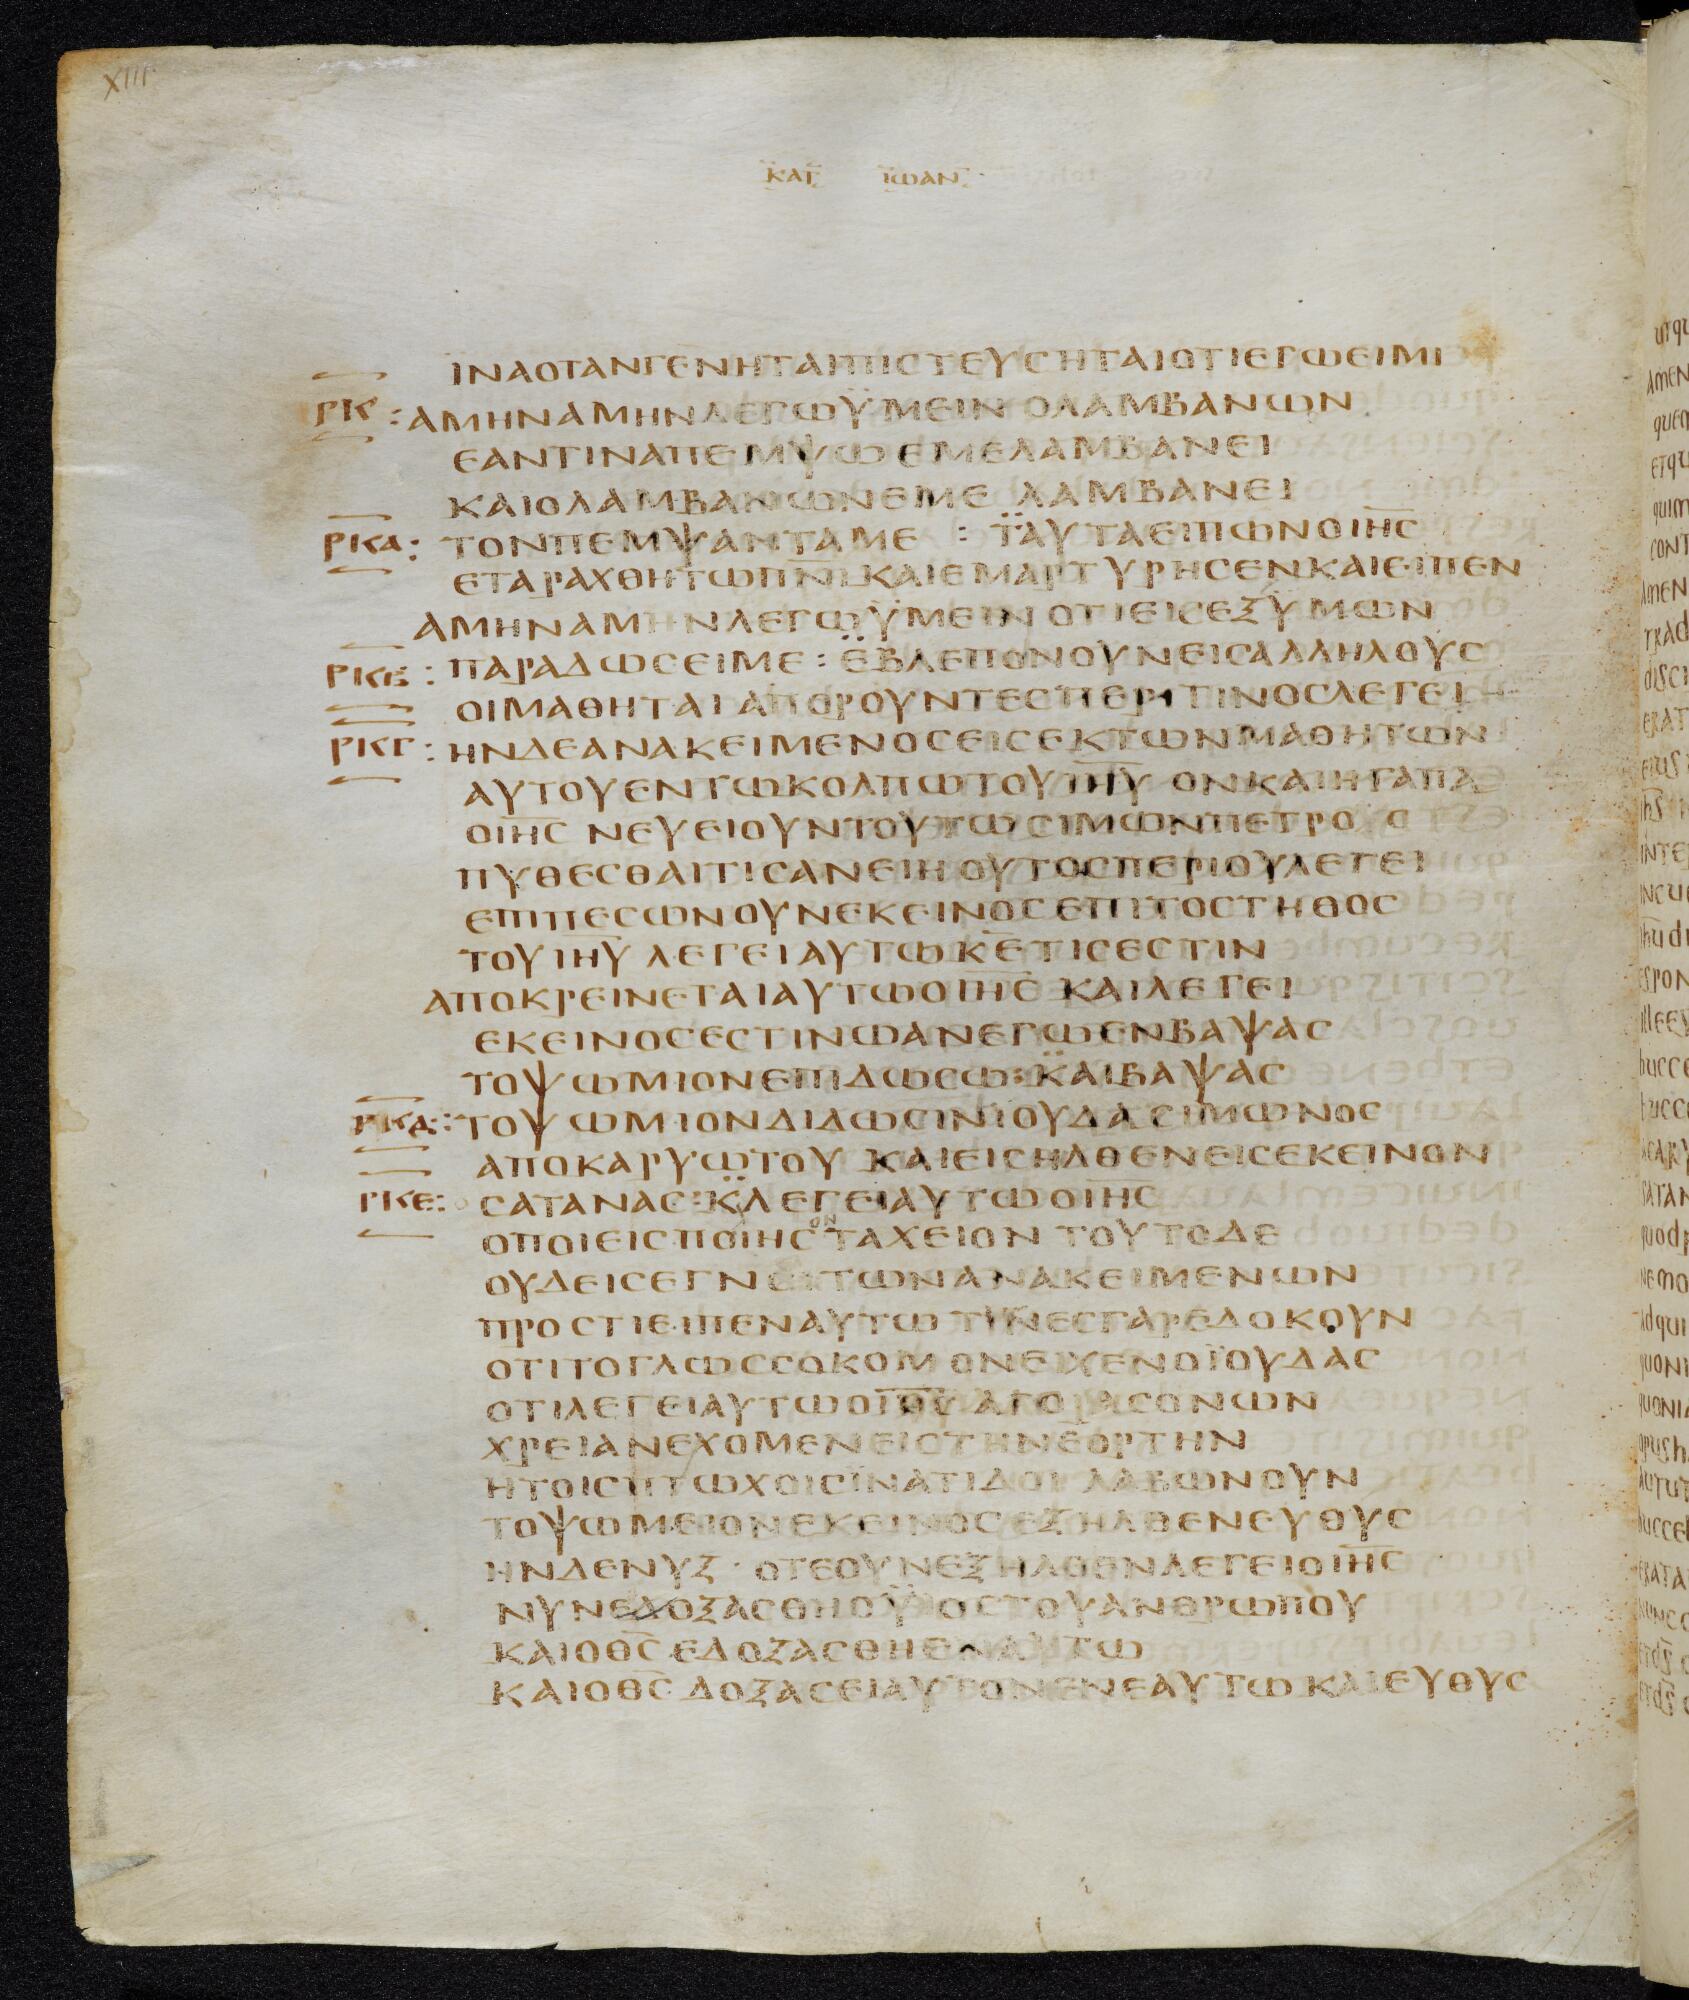 XIII
ΚΑΤ ΙΩΑΝ
ΙΝΑΟΤΑΝΓΕΝΗΤΑΙΠΙΣΤΕΥΣΗΤΑΙΟΤΙΕΓΩΕΙΜΙ
ΡΚ : ΑΜΗΝΑΜΗΝΛΕΓΩΫΜΕΙΝ ΟΛΑΜΒΑΝΩΝ
ΕΑΝΤΙΝΑΠΕΜΨΩ ΕΜΕΛΑΜΒΑΝΕΙ
ΚΑΙΟΛΑΜΒΑΝΩΝΕΜΕ ΛΑΜΒΑΝΕΙ
ΡΚΑ : ΤΟΝΠΕΜΨΑΝΤΑΜΕ : ΤΑΥΤΑΕΙΠΩΝΟΙΗΣ
ΕΤΑΡΑΧΘΗΤΩΠΝΙ ΚΑΙΕΜΑΡΤΥΡΗΣΕΝΚΑΙΕΙΠΕΝ
ΑΜΗΝΑΜΗΝΛΕΓΩΫΜΕΙΝ ΟΤΙΕΙΣΕΞΥΜΩΝ
ΡΚΒ : ΠΑΡΑΔΩΣΕΙΜΕ : ΕΒΛΕΠΟΝΟΥΝΕΙΣΑΛΛΗΛΟΥΣ
ΟΙΜΑΘΗΤΑΙΑΠΟΡΟΥΝΤΕΣΠΕΡΙΤΙΝΟΣΛΕΓΕΙ
ΡΚΓ : ΗΝΔΕΑΝΑΚΕΙΜΕΝΟΣΕΙΣΕΚΤΩΝΜΑΘΗΤΩΝ
ΑΥΤΟΥΕΝΤΩΚΟΛΠΩΤΟΥΙΗΥ ΟΝΚΑΙΗΓΑΠΑ
ΟΙΗΣ ΝΕΥΕΙΟΥΝΤΟΥΤΩΣΙΜΩΝΠΕΤΡΟΣ
ΠΥΘΕΣΘΑΙΤΙΣΑΝΕΙΗ ΟΥΤΟΣΠΕΡΙΟΥΛΕΓΕΙ
ΕΠΙΠΕΣΩΝΟΥΝΕΚΕΙΝΟΣΕΠΙΤΟΣΤΗΘΟΣ
ΤΟΥΙΗΥ ΛΕΓΕΙΑΥΤΩΚΕΤΙΣΕΣΤΙΝ
ΑΠΟΚΡΕΙΝΕΤΑΙΑΥΤΩΟΙΗΣ ΚΑΙΛΕΓΕΙ
ΕΚΕΙΝΟΣΕΣΤΙΝΩΑΝΕΓΩΕΝΒΑΨΑΣ
ΤΟΨΩΜΙΟΝΕΠΙΔΩΣΩ : ΚΑΙΒΑΨΑΣ
ΡΚΔ : ΤΟΨΩΜΙΟΝΔΙΔΩΣΙΝΙΟΥΔΑΣΙΜΩΝΟΣ
ΑΠΟΚΑΡΥΩΤΟΥ ΚΑΙΕΙΣΗΛΘΕΝΕΙΣΕΚΕΙΝΟΝ
ΡΚΕ : ΣΑΤΑΝΑΣ : ΚΛΕΓΕΙΑΥΤΩΟΙΗΣ
ΟΠΟΙΕΙΣΠΟΙΗΣΟΝΤΑΧΕΙΟΝ ΤΟΥΤΟΔΕ
ΟΥΔΕΙΣΕΓΝΩΤΩΝΑΝΑΚΕΙΜΕΝΩΝ
ΠΡΟΣΤΙΕΙΠΕΝΑΥΤΩ ΤΙΝΕΣΓΑΡΕΔΟΚΟΥΝ
ΟΤΙΤΟΓΛΩΣΣΟΚΟΜΟΝΕΙΧΕΝΟΪΟΥΔΑΣ
ΟΤΙΛΕΓΕΙΑΥΤΩΟΙΗΣ ΑΓΟΡΑΣΟΝΩΝ
ΧΡΕΙΑΝΕΧΟΜΕΝΕΙΣΤΗΝΕΟΡΤΗΝ
ΗΤΟΙΣΠΤΩΧΟΙΣΪΝΑΤΙΔΟΙ ΛΑΒΩΝΟΥΝ
ΤΟΨΩΜΕΙΟΝΕΚΕΙΝΟΣΕΞΗΛΘΕΝΕΥΘΥΣ
ΗΝΔΕΝΥΞ · ΟΤΕΟΥΝΕΞΗΛΘΕΝΛΕΓΕΙΟΙΗΣ
ΝΥΝΕΔΟΞΑΣΘΗΟΫΙΟΣΤΟΥΑΝΘΡΩΠΟΥ
ΚΑΙΟΘΣ ΕΔΟΞΑΣΘΗΕΝΑΥΤΩ
ΚΑΙΟΘΣ ΔΟΞΑΣΕΙΑΥΤΟΝΕΝΕΑΥΤΩΚΑΙΕΥΘΥΣ